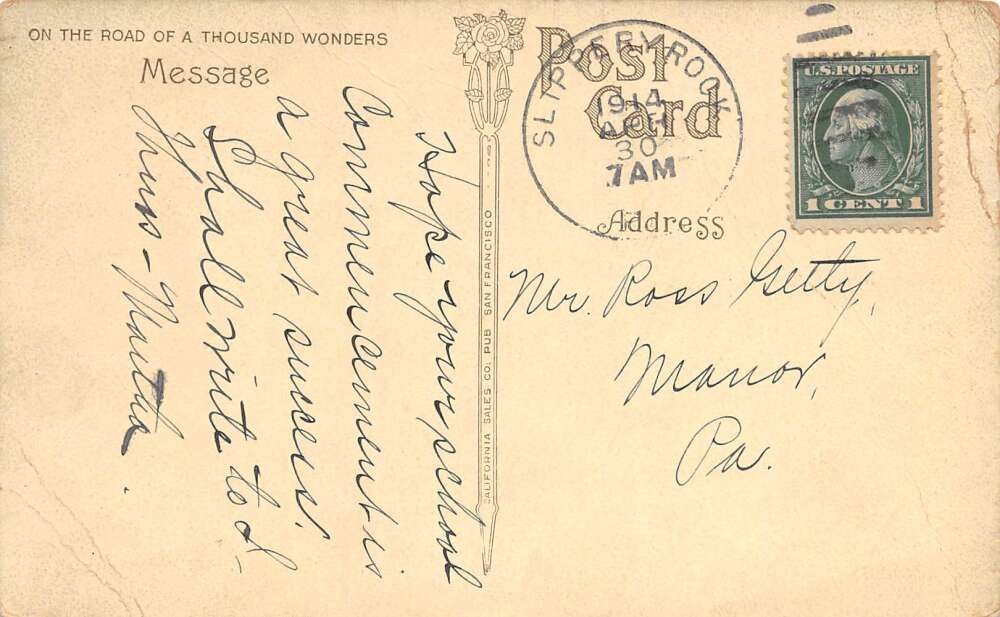 ON THE ROAD OF A THOUSAND WONDERS
Message
Hope your school
Commencement is
a great success.
Shall write to d-
Yours - Martha.
CALIFORNIA SALES CO. PUB SAN FRANCISCO
Post
Card
SLIPPERY ROCK
1914
APR
30
7 AM
Address
U.S. POSTAGE
1 CENT 1
Mr. Ross Getty,
Manor,
Pa.